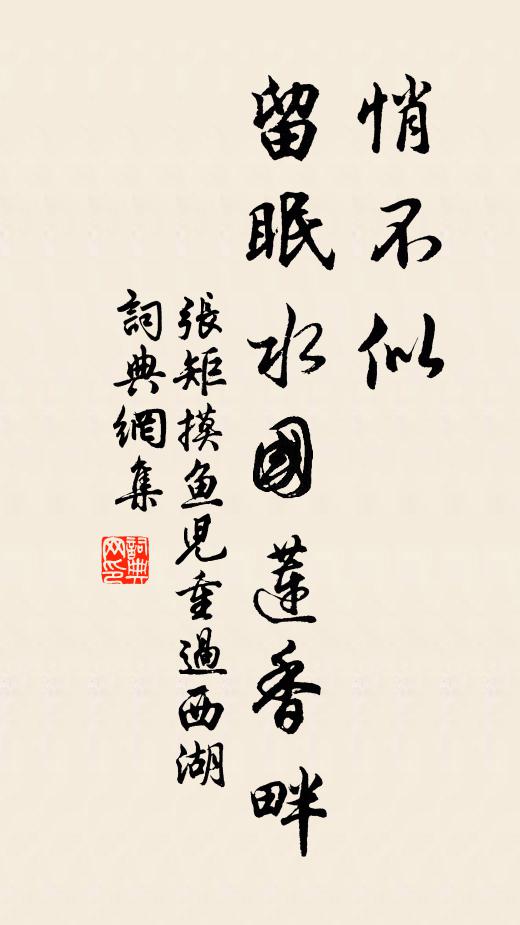 悄不似
留眠水國蓮香畔
張矩摸鱼兒重過西湖
詞典網集
詞典网印